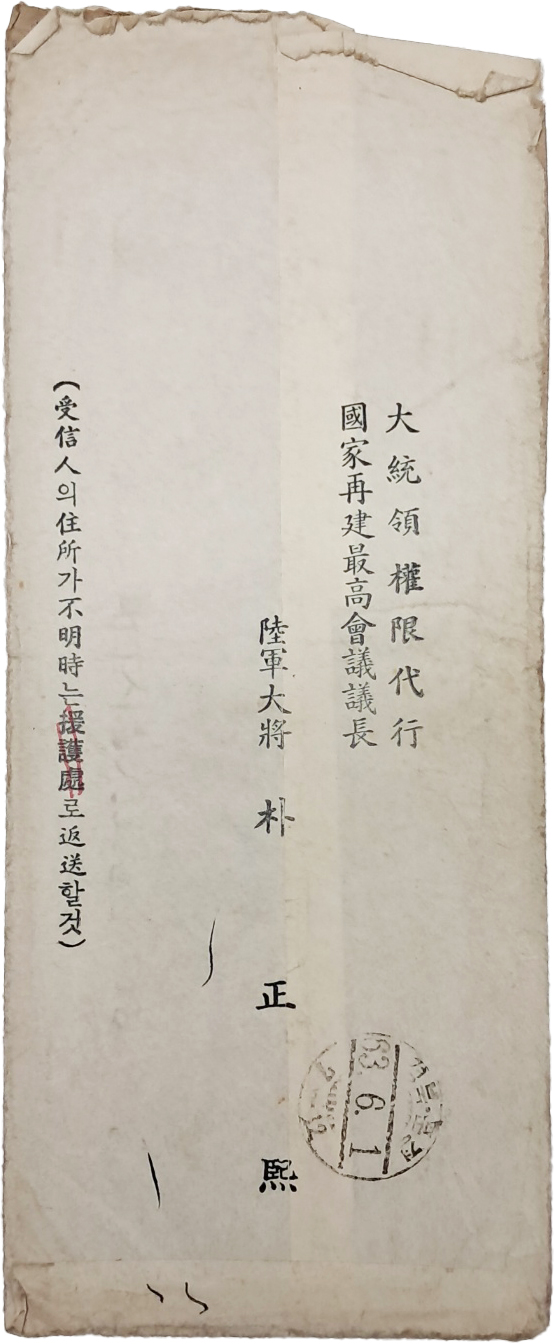 大統領權限代行
國家再建最高會議議長
陸軍大將 朴正熙
(受信人의 住所가 不明時는 援護處로 返送할것)
63. 6. 1